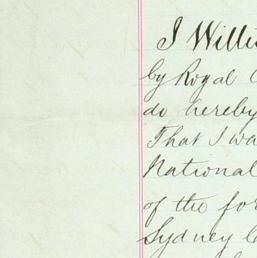 I Willi
by Royal
do hereby
That I wa
National
of the for
Sydney